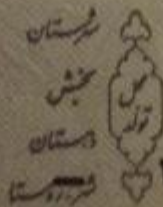 محل تولد
شهرستان
بخش
دهستان
شهر روستا